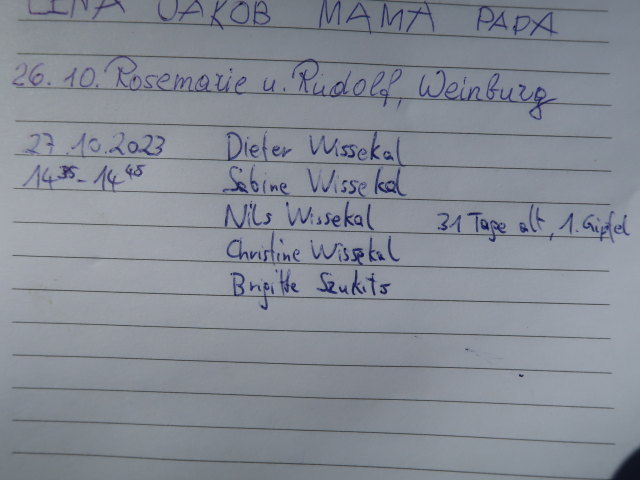 LENA JAKOB MAMA PAPA
26. 10. Rosemarie u. Rudolf, Weinburg
27.10.2023 Dieter Wissekal
14 35 - 14 45 Sabine Wissekal
Nils Wissekal 31 Tage alt, 1. Gipfel
Christine Wissekal
Brigitte Szukits